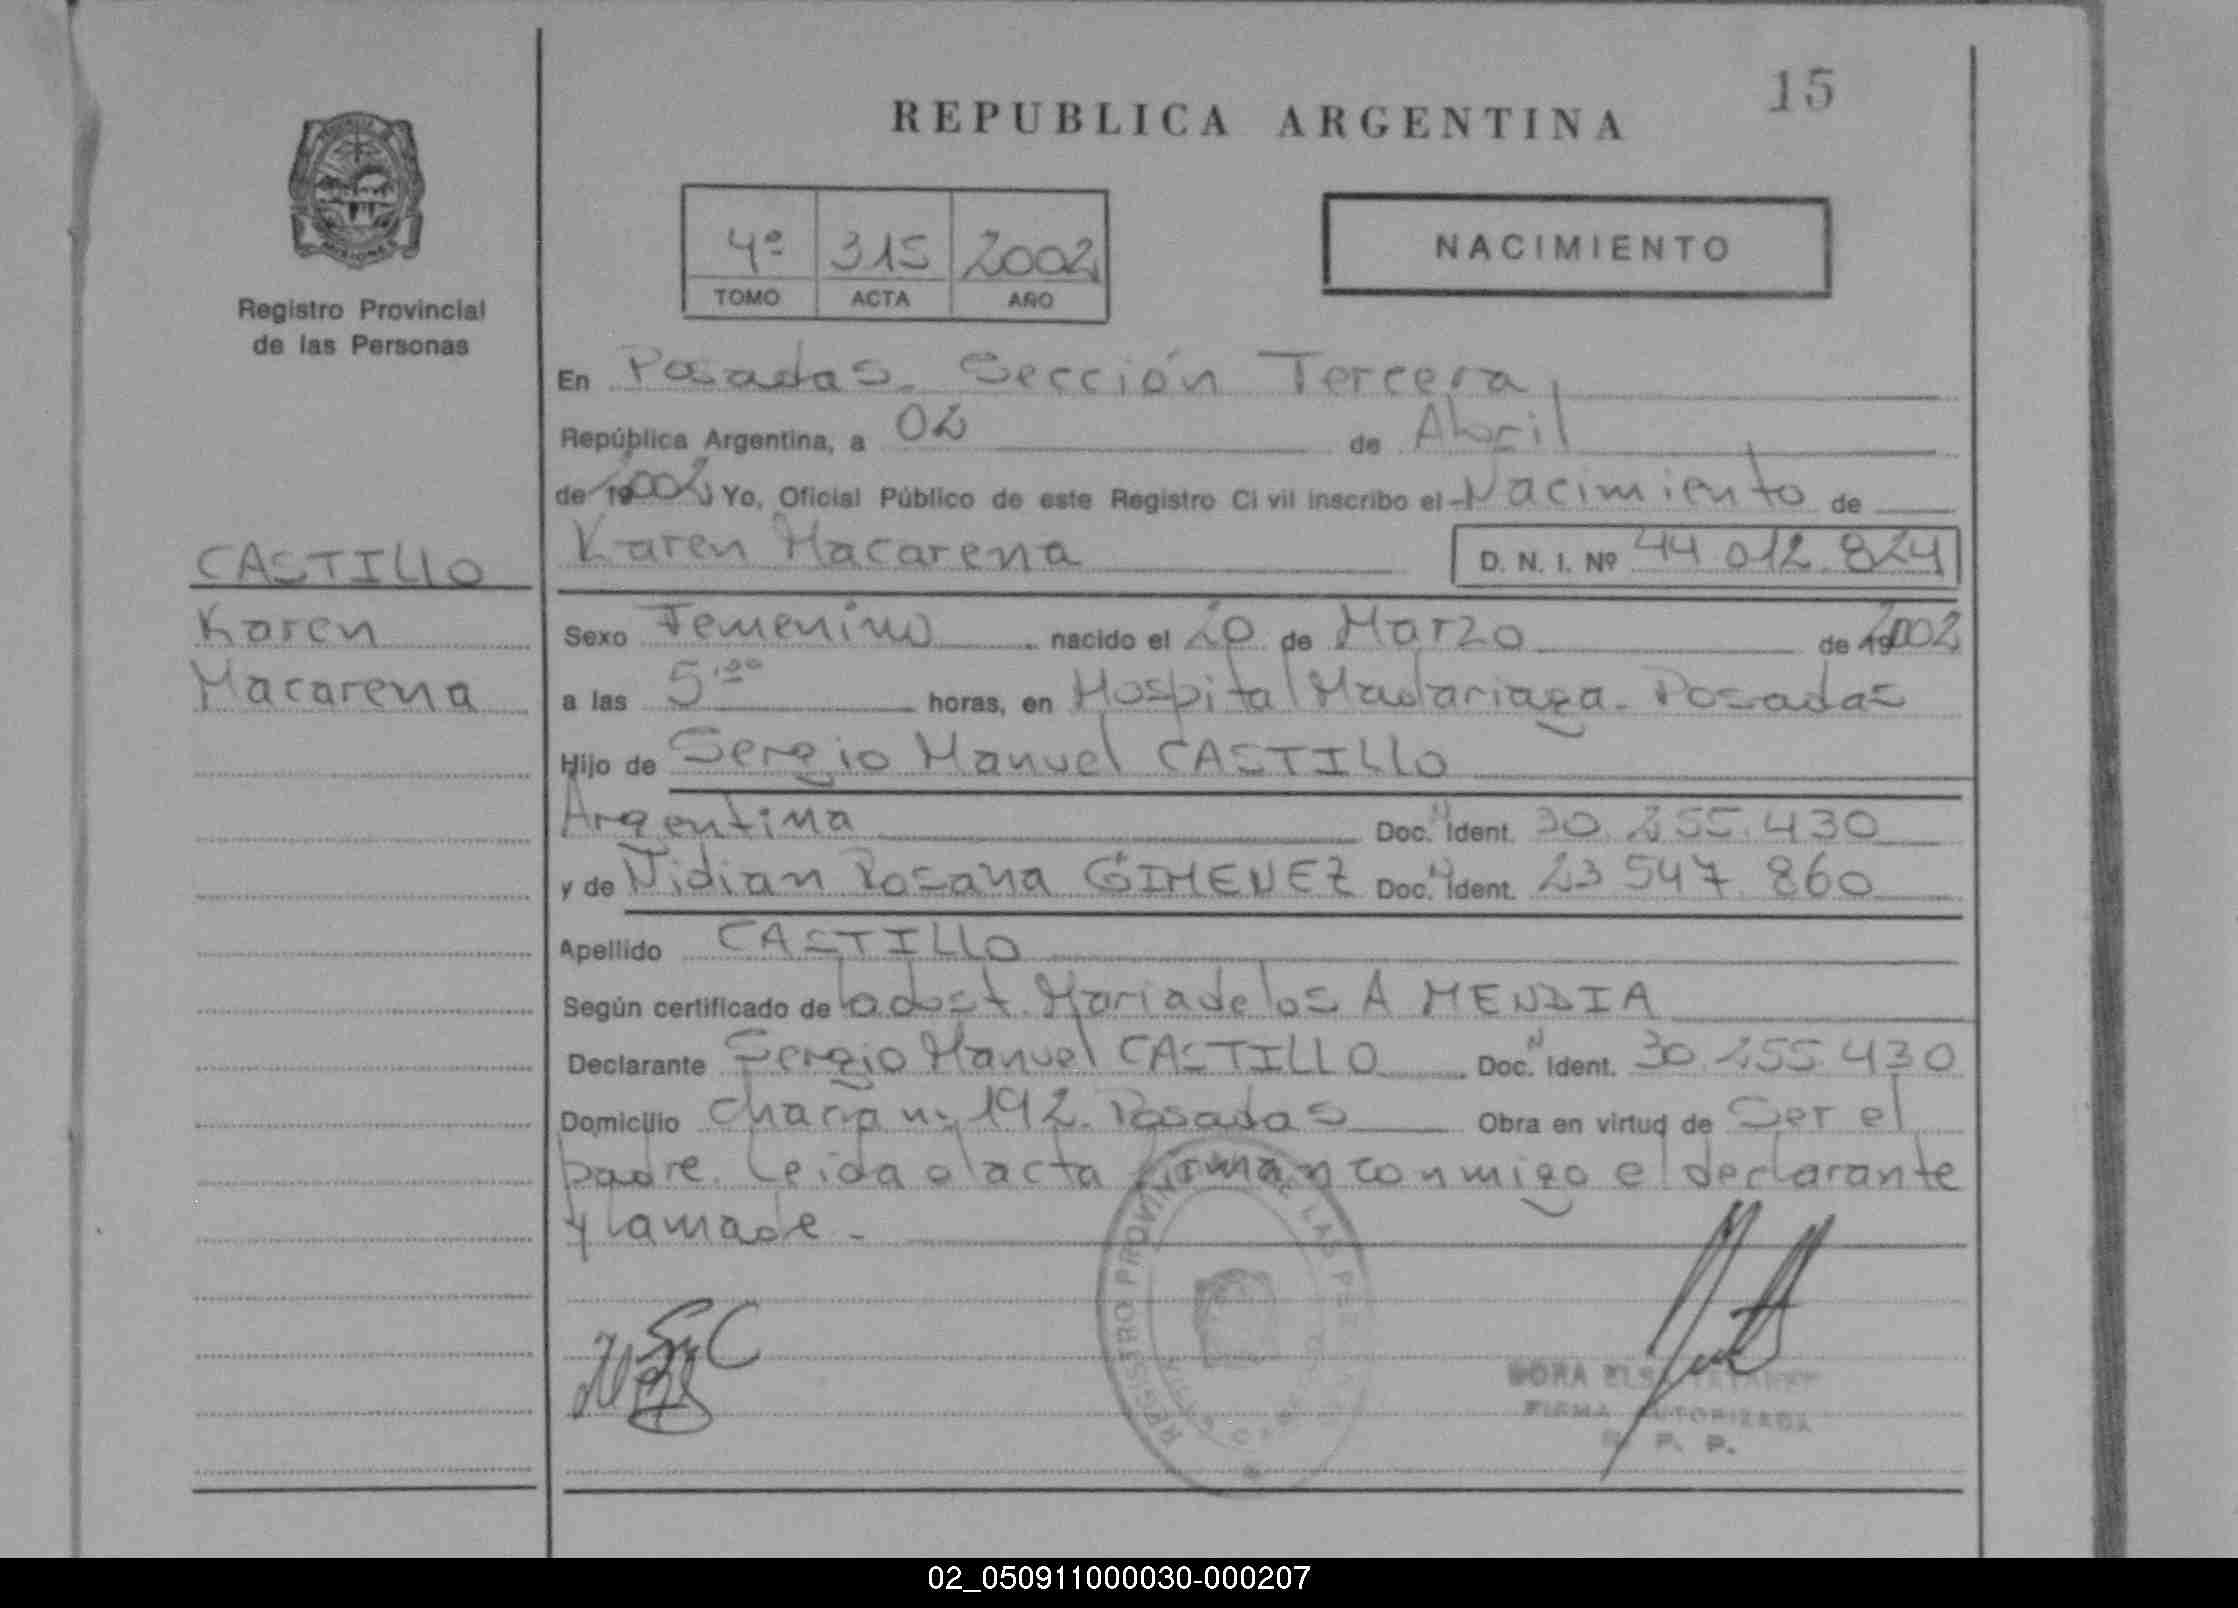 15
REPUBLICA ARGENTINA
4º 315 2002
TOMO ACTA AÑO
NACIMIENTO
Registro Provincial
de las Personas
En Posadas. Sección Tercera,
República Argentina, a 02 de Abril
de 2002 Yo, Oficial Público de este Registro Civil inscribo el Nacimiento de
CASTILLO
Karen
Macarena
Karen Macarena D. N. I. Nº 44 012.824
Sexo Femenino nacido el 20 de Marzo de 2002
a las 5,00 horas, en Hospital Madariaga. Posadas
Hijo de Sergio Manuel CASTILLO
Argentina Doc. Ident. 30.255.430
y de Nidian Rosana GIMENEZ Doc. Ident. 23 547.860
Apellido CASTILLO
Según certificado de la obst. Maria de los A MENDIA
Declarante Sergio Manuel CASTILLO Doc. Ident. 30.255.430
Domicilio 192. Posadas Obra en virtud de Ser el
padre. Leida el acta firman conmigo el declarante
y la made.-
REGISTRO PROVINCIAL DE LAS PER
FIRMA AUTORIZADA
R. P. P.
02_050911000030-000207